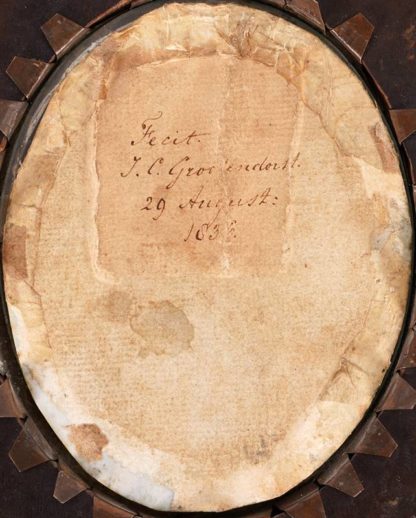 Fecit.
J. C. Groo'endorst.
29 August:
183